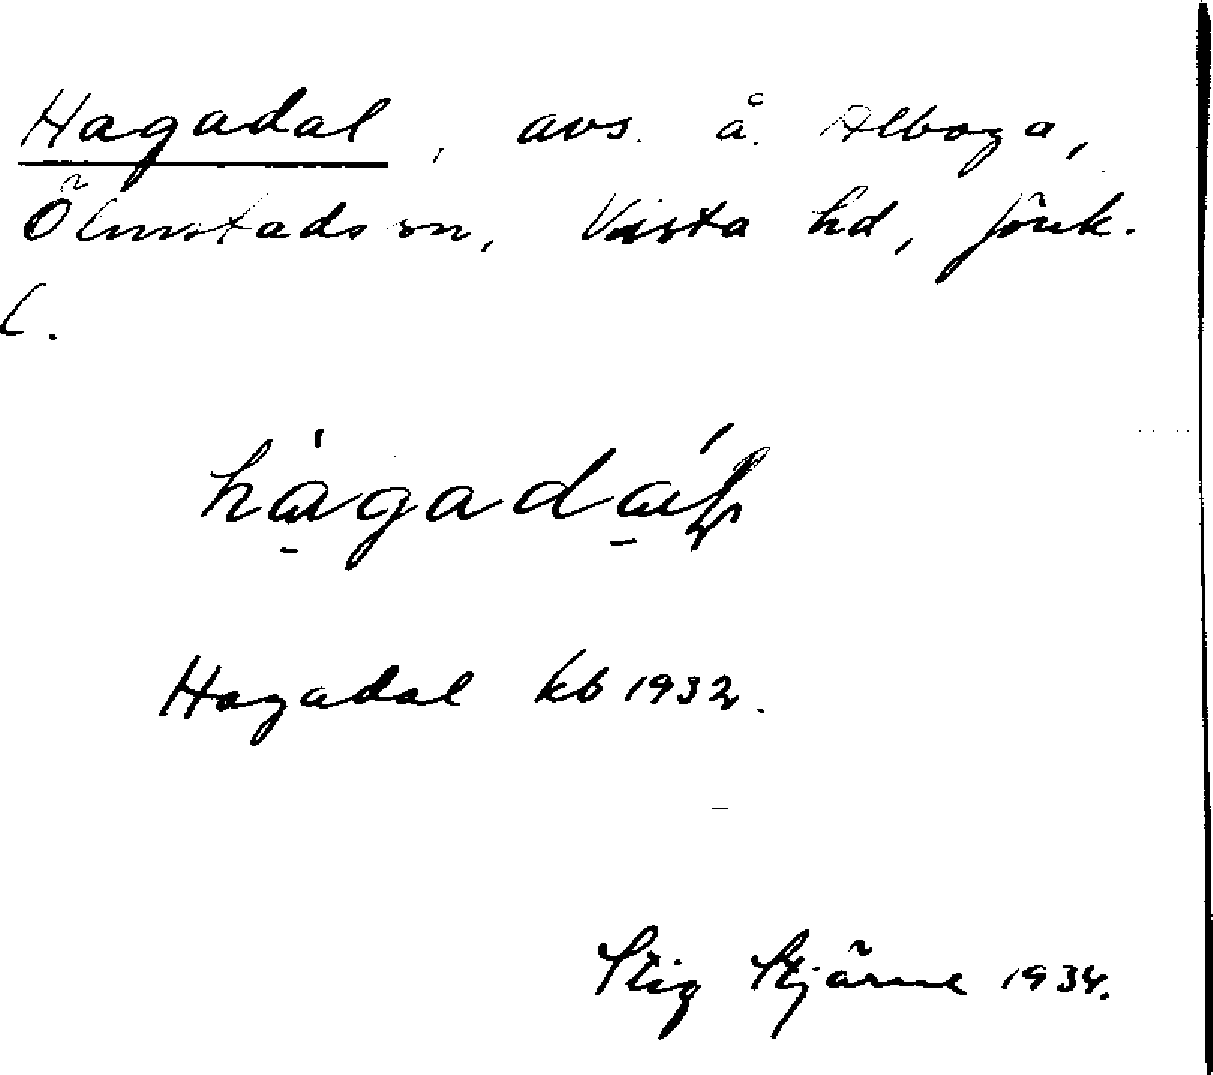 Hagadal, avs. å Alboga,
Ölmstads sn, Vista hd, Jönk.
l.
hágadál
Hagadal kb 1932.
Stig Stjärne 1934.